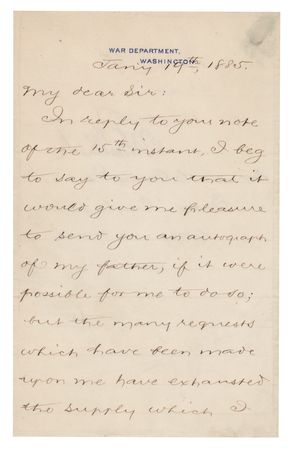 WAR DEPARTMENT,
WASHINGTON.
Jany 19th, 1885.
My dear Sir:
In reply to your note
of the 15th instant, I beg
to say to you that it
would give me pleasure
to send you an autograph
of my father, if it were
possible for me to do so;
but the many requests
which have been made
upon me have exhausted
the supply which I